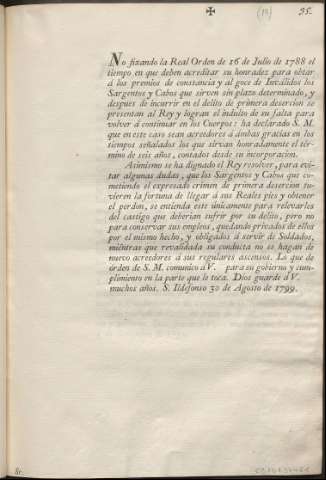 ✠ (19) 95.
No fixando la Real Orden de 16 de Julio de 1788 el
tiempo en que deben acreditar su honradez para obtar
á los premios de constancia y al goce de Inválidos los
Sargentos y Cabos que sirven sin plazo determinado, y
despues de incurrir en el delito de primera desercion se
presentan al Rey y logran el indulto de su falta para
volver á continuar en los Cuerpos: ha declarado S. M.
que en este caso sean acreedores á ámbas gracias en los
tiempos señalados los que sirvan honradamente el tér-
mino de seis años, contados desde su incorporacion.
Asimismo se ha dignado el Rey resolver, para evi-
tar algunas dudas, que los Sargentos y Cabos que co-
metiendo el expresado crímen de primera desercion tu-
vieren la fortuna de llegar á sus Reales pies y obtener
el perdon, se entienda este únicamente para relevarles
del castigo que deberian sufrir por su delito, pero no
para conservar sus empleos, quedando privados de ellos
por el mismo hecho, y obligados á servir de Soldados,
miéntras que revalidada su conducta no se hagan de
nuevo acreedores á sus regulares ascensos. Lo que de
órden de S. M. comunico á V. para su gobierno y cum-
plimiento en la parte que le toca. Dios guarde á V.
muchos años. S. Ildefonso 30 de Agosto de 1799.